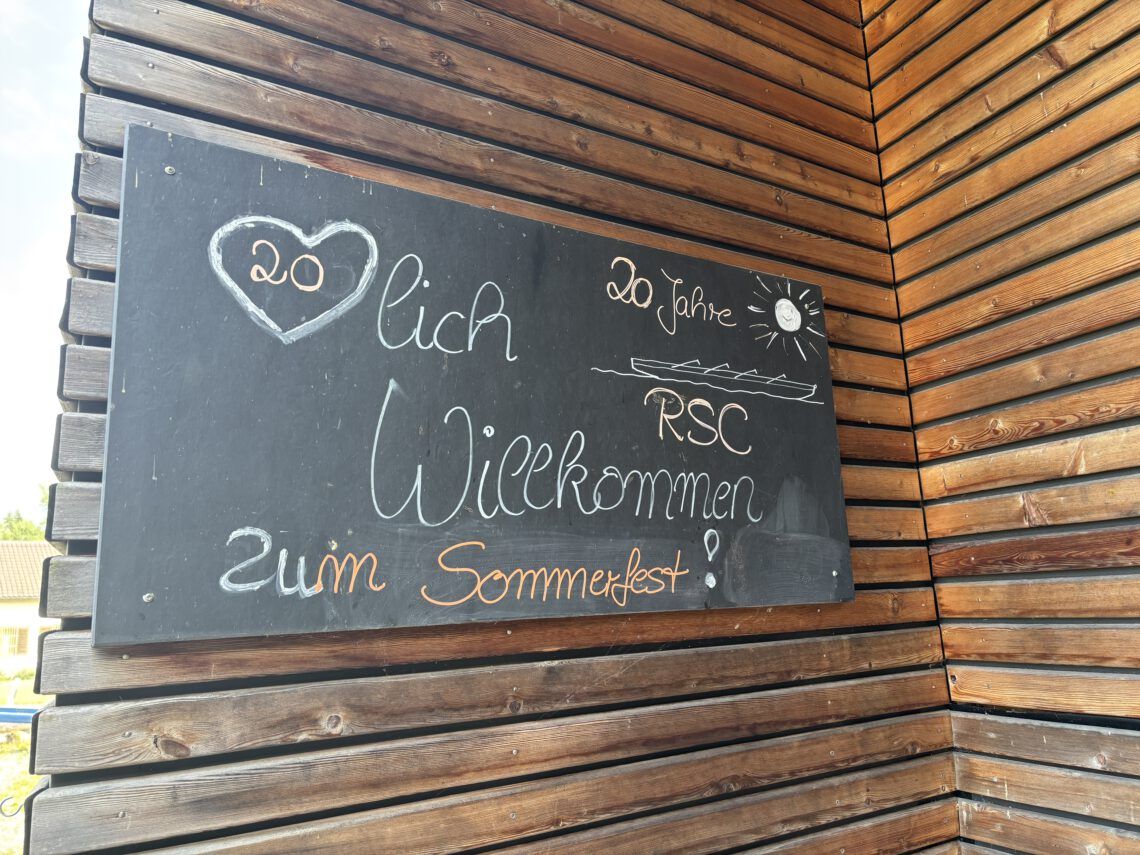 20 lich
20 Jahre
RSC
Willkommen
zum Sommerfest !